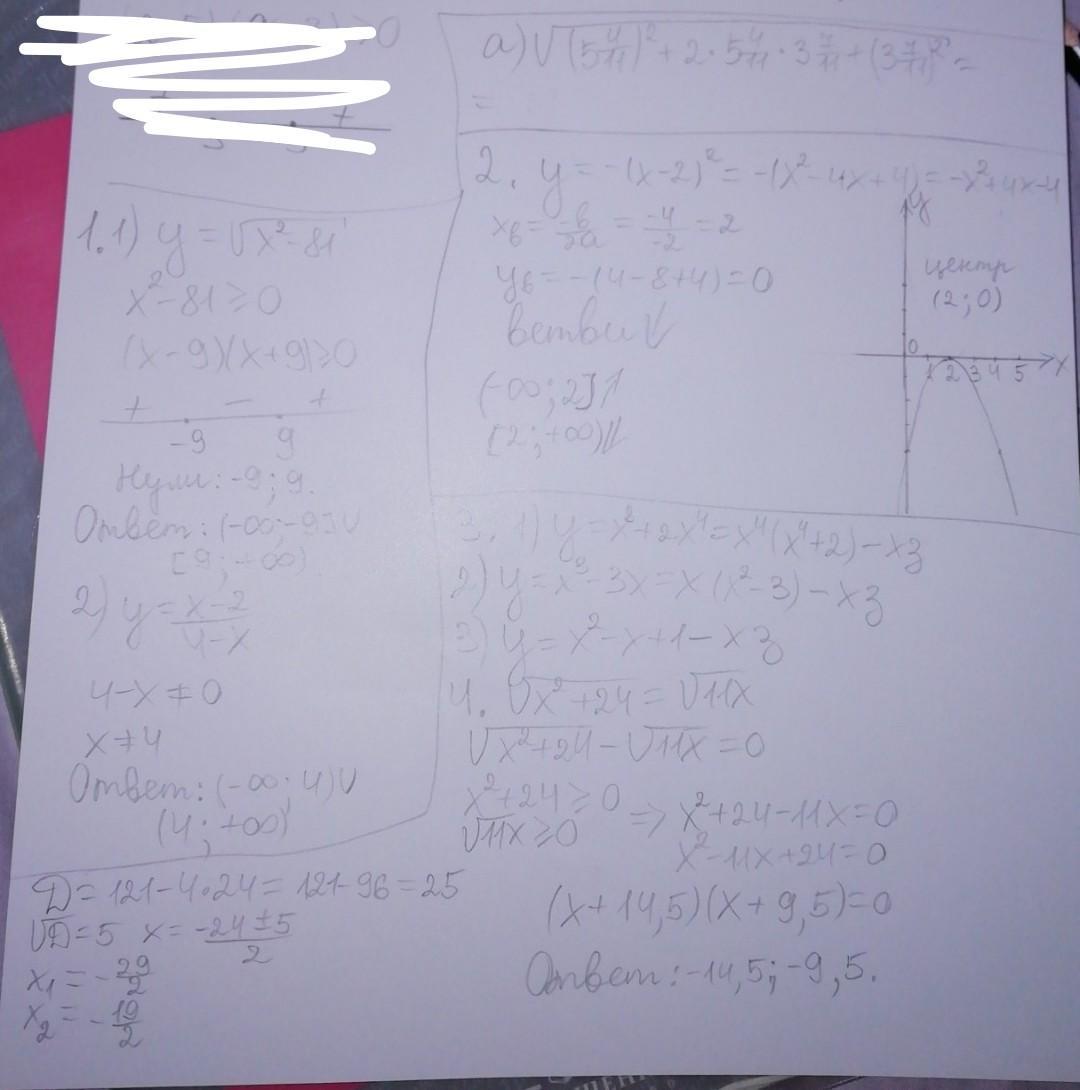 ≥0
+
а) √(5 4/11)² + 2·5 4/11·3 7/11 + (3 7/11)² =
=
1. 1) y = √x²-81
x²-81 ≥ 0
(x-9)(x+9) ≥ 0
+ - +
-9 9
Нули: -9; 9.
Ответ: (-∞; -9] ∪
[9; +∞)
2) y = x-2/4-x
4-x ≠ 0
x ≠ 4
Ответ: (-∞; 4) ∪
(4; +∞)
2. y = -(x-2)² = -(x²-4x+4) = -x²+4x-4
xв = -b/2a = -4/-2 = 2
yв = -(4-8+4) = 0
ветви ↓
(-∞; 2] ↑
[2; +∞) ↓
y
центр
(2; 0)
0
1 2 3 4 5 x
3. 1) y = x²+2x⁴ = x⁴(x⁴+2) - хз
2) y = x³-3x = x(x²-3) - хз
3) y = x²-x+1 - хз
4. √x²+24 = √11x
√x²+24 - √11x = 0
x²+24 ≥ 0
√11x ≥ 0
=> x²+24-11x = 0
x²-11x+24 = 0
(x+14,5)(x+9,5) = 0
Ответ: -14,5; -9,5.
D = 121-4·24 = 121-96 = 25
√D = 5 x = -24±5/2
x₁ = -29/2
x₂ = -19/2